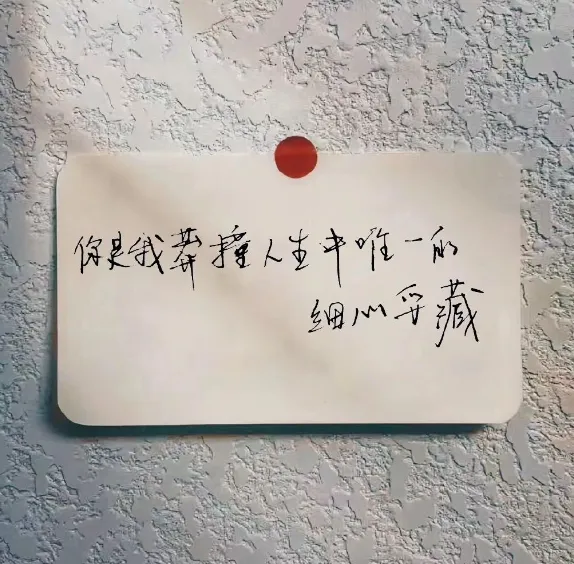 你是我莽撞人生中唯一的
细心妥藏